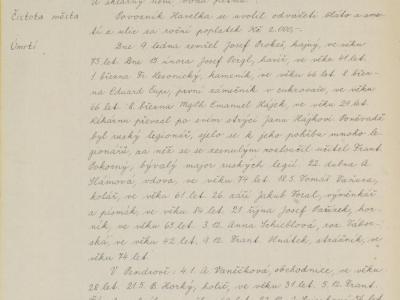 a sklárny není voda pitná.
Čistota města
Povozník Havelka se uvolil odvážeti bláto a sme-
tí z ulic za roční poplatek Kč 2.000,-
Úmrtí
Dne 9. ledna zemřel Josef Prokeš, hajný, ve věku
73 let. Dne 13. února Josef Voigl, kovář, ve věku 41 let.
1. března Fr. Lesonický, kameník, ve věku 66 let. 8. břez-
na Eduard Cupr, první zámečník v cukrovaře, ve věku
66 let. 8. března MgPh Emanuel Hájek, ve věku 29 let.
Lékárnu převzal po něm strýci Janu Hájkovi. Poněvadž
byl ruský legionář, sjelo se k jeho pohřbu mnoho le-
gionářů, za něž se se zesnulým rozloučil učitel Frant.
Pokorný, bývalý major ruských legií. 22. dubna A.
Hámová, vdova, ve věku 74 let. 18.5. Tomáš Vaňura,
kolář, ve věku 61 let. 26. září Jakub Vozal, výměnkář
a písmák, ve věku 84 let. 21. října Josef Vaňzek, hor-
ník, ve věku 63 let. 3.12. Anna Schieblová, roz. Tábor-
ská, ve věku 42 let. 9.12. Frant. Hnátek, strážník, ve
věku 74 let.
V Pendrově: 4.1. A. Vaníčková, obchodnice, ve věku
28 let. 21.5. B. Horký, holič, ve věku 31 let. 5.12. Frant.